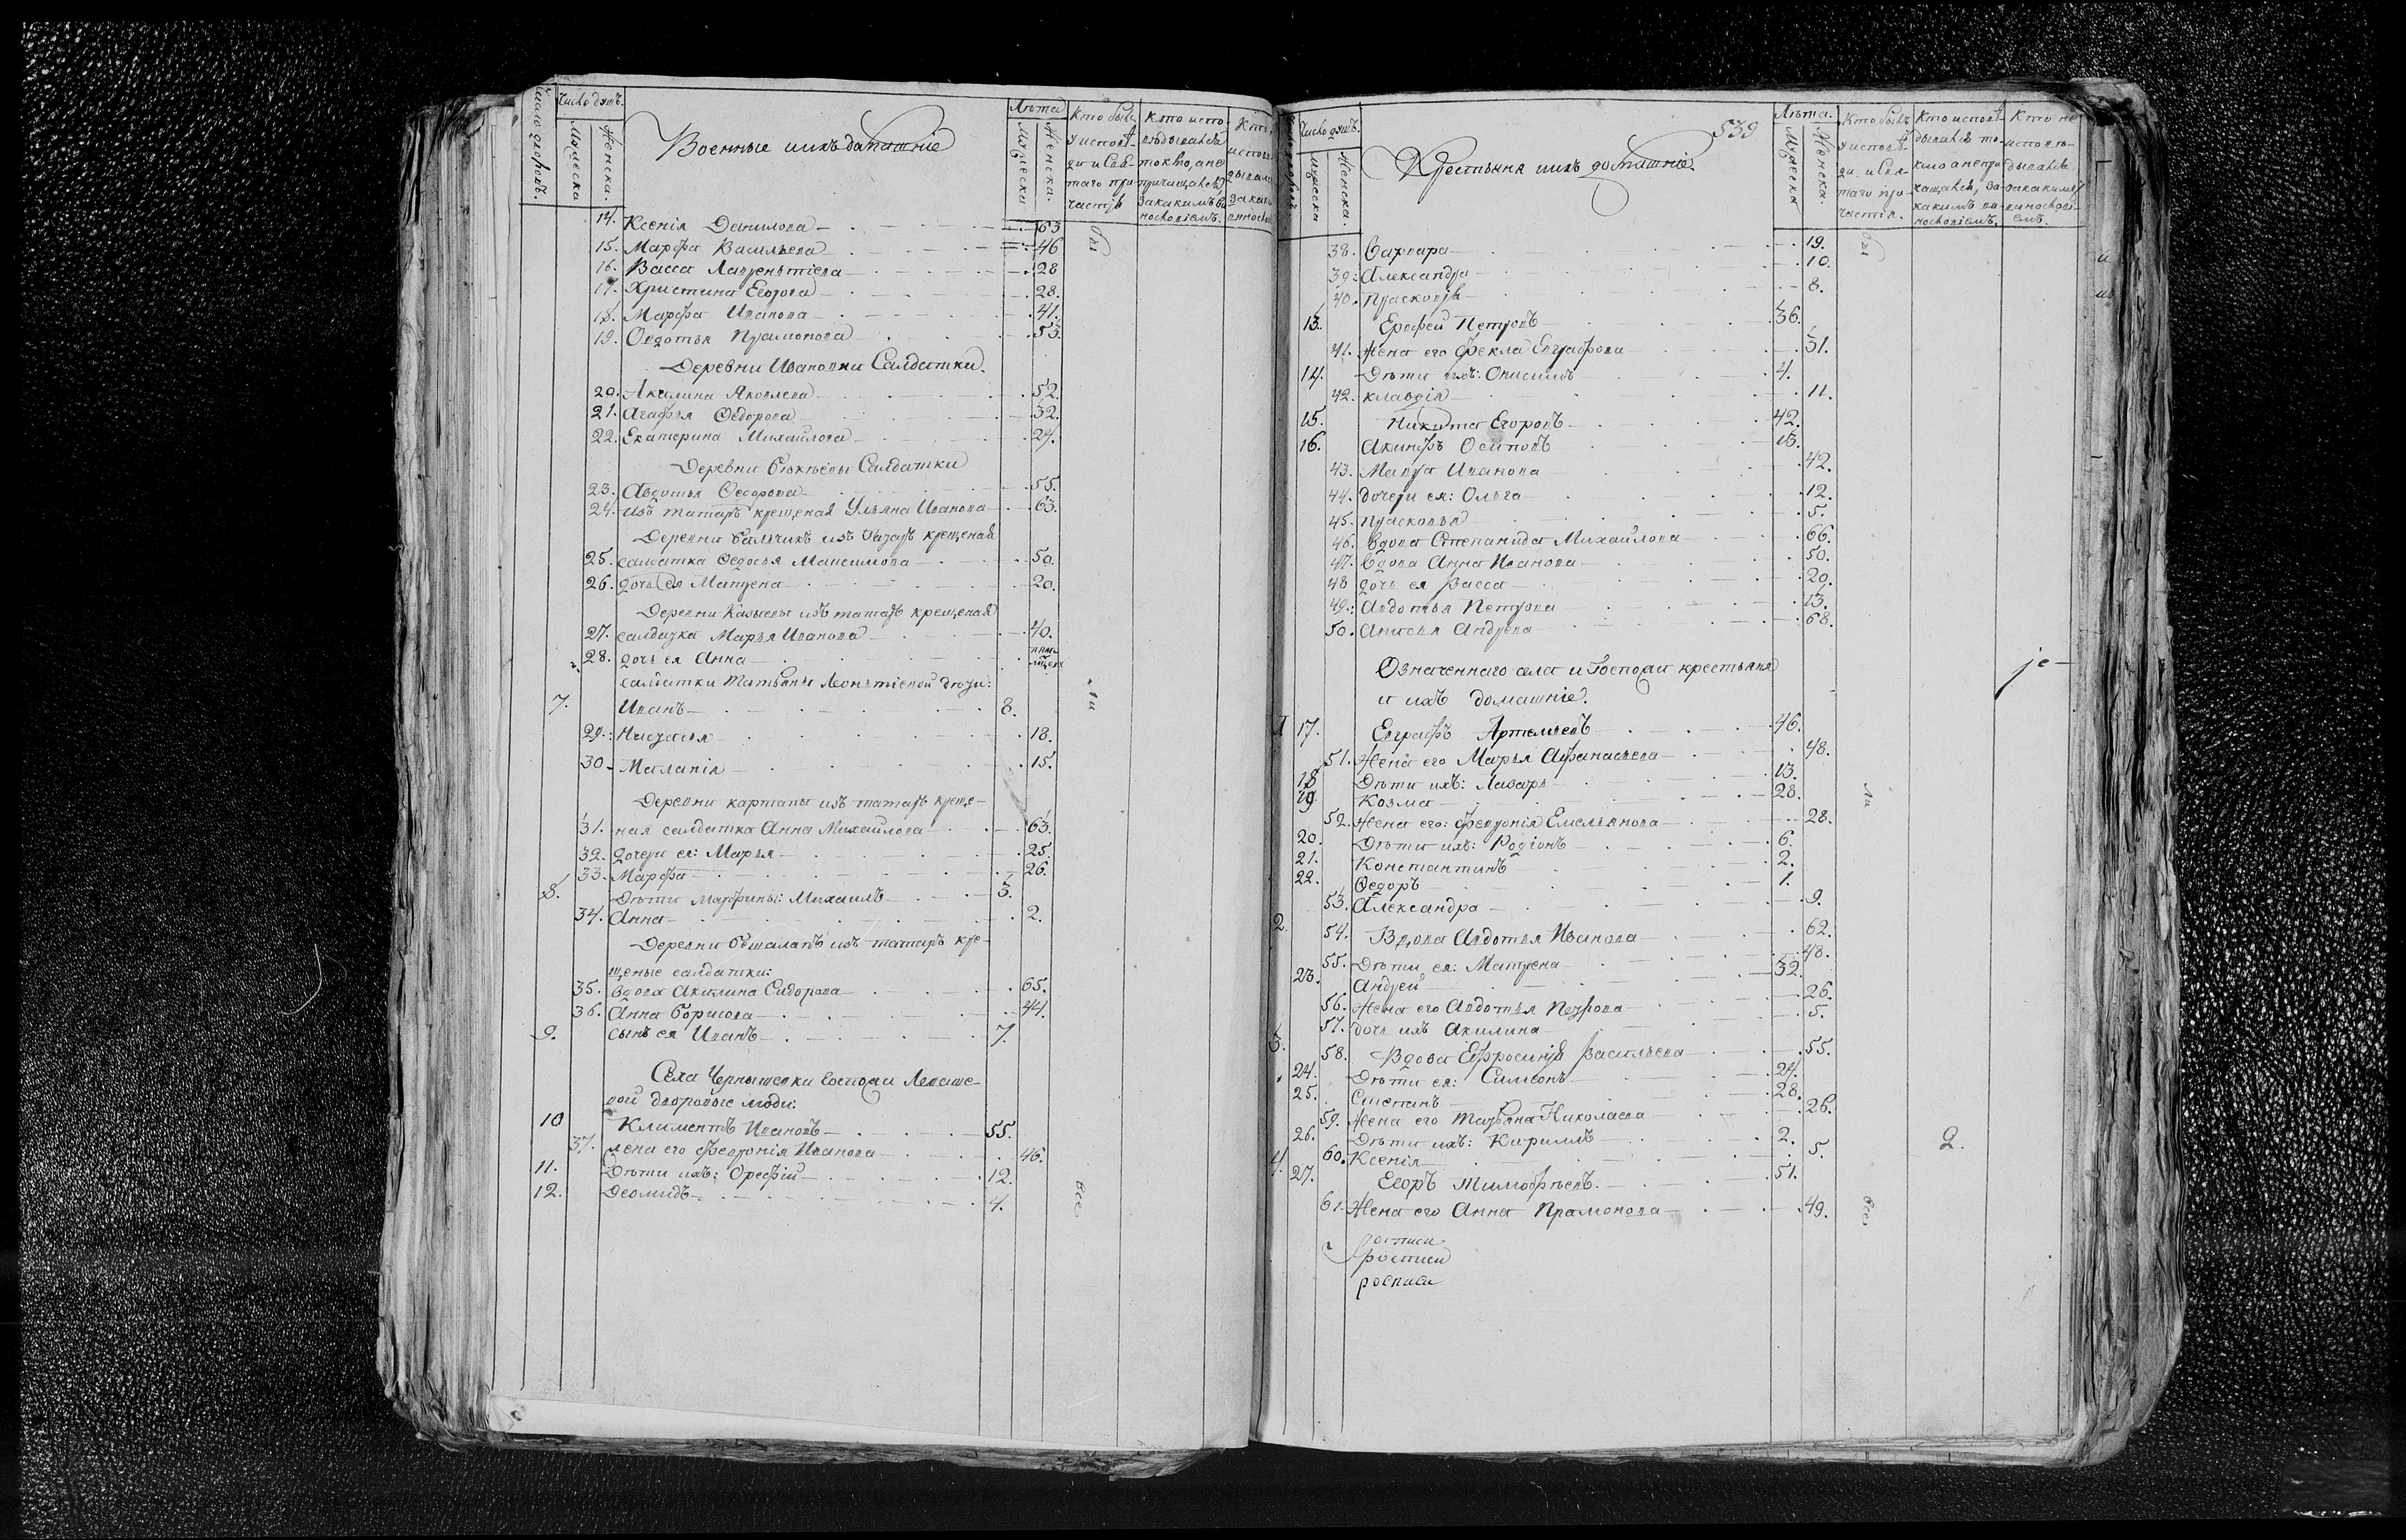 Число дворовъ.
Число душъ.
Мужеска
Женска.
Военные иихъ домашніе
Лѣта
Мужеска
Женска.
Кто былъ у исповѣди и святаго причастія
Кто исповѣдывался токмо, а не причищался, за какимъ винословіемъ.
14. Ксенія Данилова 63
15. Марфа Васильева 46
16. Васса Лаврентіева 28
17. Христина Егорова 28.
18. Марфа Иванова 41.
19. Овдотья Прамонова 53
Деревни Ивановки Салдатки.
20. Акилина Яковлева 52.
21. Агафья Ѳедорова 32.
22. Екатерина Михайлова 24.
Деревни Салдатки
23. Авдотья Ѳедорова 55.
24. изъ татаръ крещеная Ульяна Иванова 63.
Деревни изъ татаръ крещеная
25. салдатка Ѳедосья Максимова 50.
26. дочь ея Матрена 20.
Деревни изъ татаръ крещеная
27. салдатка Марья Иванова 40.
28. дочь ея Анна
салдатки Татьяны Леонтіевой дѣти:
7. Иванъ 8.
29. Настасья 18.
30. Маланія 15.
Деревни картаны изъ татаръ креще-
31. ная салдатка Анна Михайлова 63.
32. дочери ея: Марья 25.
33. Марфа 26.
8. Дѣти Марфины: Михаилъ 3.
34. Анна 2.
Деревни изъ татаръ кре-
щеные салдатки:
35. вдова Акилина Сидорова 65.
36. Анна Борисова 44.
9. сынъ ея Иванъ 7.
Села Чернышевки Госпожи Леваше-
вой дворовые люди:
10 Климентъ Ивановъ 55.
37. жена его Февронія Иванова 46.
11. Дѣти ихъ: Орефій 12.
12. Деомидъ 4.
бы
ли
все
539
Число душъ.
мужеска
Женска.
Крестьяня ихъ домашніе.
Лѣта.
Мужеска
Женска.
Кто былъ у исповѣди и святаго причастія.
Кто исповѣдывался токмо а непричащался, за какимъ винословіемъ.
Кто не исповѣдывался за какимъ винословіемъ.
38. Варвара 19.
39. Александра 10.
40. Прасковія 8.
13. Ерофей Петровъ 36.
41. Жена его Фекла Евграфова 31.
14. Дѣти ихъ: Онисимъ 4.
42. клавдія 11.
15. Никита Егоровъ 42.
16. Акинфъ Осиповъ 13.
43. Мавра Иванова 42.
44. дочери ея: Ольга 12.
45. прасковья 5.
46. вдова Степанида Михайлова 66.
47. вдова Анна Иванова 50.
48 дочь ея Васса 20.
49. Авдотья Петрова 13.
50. Анисья Андреева 68.
Означеннаго села и Госпожи крестьяня
и ихъ домашніе.
1 17. Евграфъ Артемьевъ 46.
51. Жена его Марья Афанасьева 48.
18 Дѣти ихъ: Лазарь 13.
19. Козма 28.
52. Жена его: Февронія Емельянова 28.
20. Дѣти ихъ: Родіонъ 6.
21. Константинъ 2.
22. Ѳедоръ 1.
53. Александра 9.
2. 54. Вдова Авдотья Иванова 62.
55. Дѣти ея: Матрена 48.
23. Андрей 32.
56. Жена его Авдотья Петрова 26.
57. дочь ихъ Акилина 5.
3. 58. Вдова Ефросинія Васильева 55.
24. Дѣти ея: Симеонъ 24.
25. Степанъ 28.
59. Жена его Татьяна Николаева 26.
26. Дѣти ихъ: Кирилъ 2.
60. Ксенія 5.
4. 27. Егоръ Тимофѣевъ. 51.
61. Жена его Анна Прамонова 49.
бы
ли
все
2.
росписи
росписи
росписи